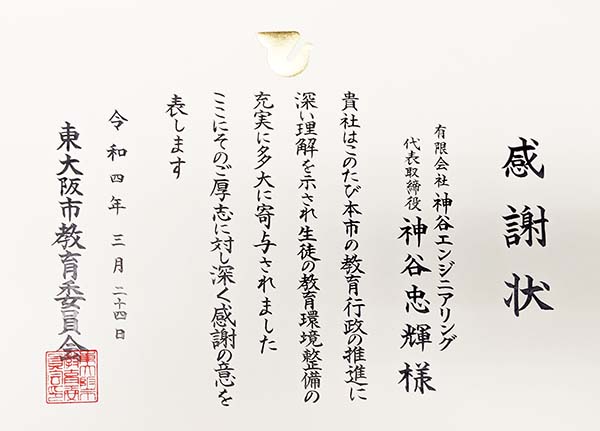 感謝状
有限会社 神谷エンジニアリング
代表取締役 神谷忠輝 様
貴社はこのたび本市の教育行政の推進に
深い理解を示され生徒の教育環境整備の
充実に多大に寄与されました
ここにそのご厚志に対し深く感謝の意を
表します
令和四年 三月 二十四日
東大阪市教育委員会